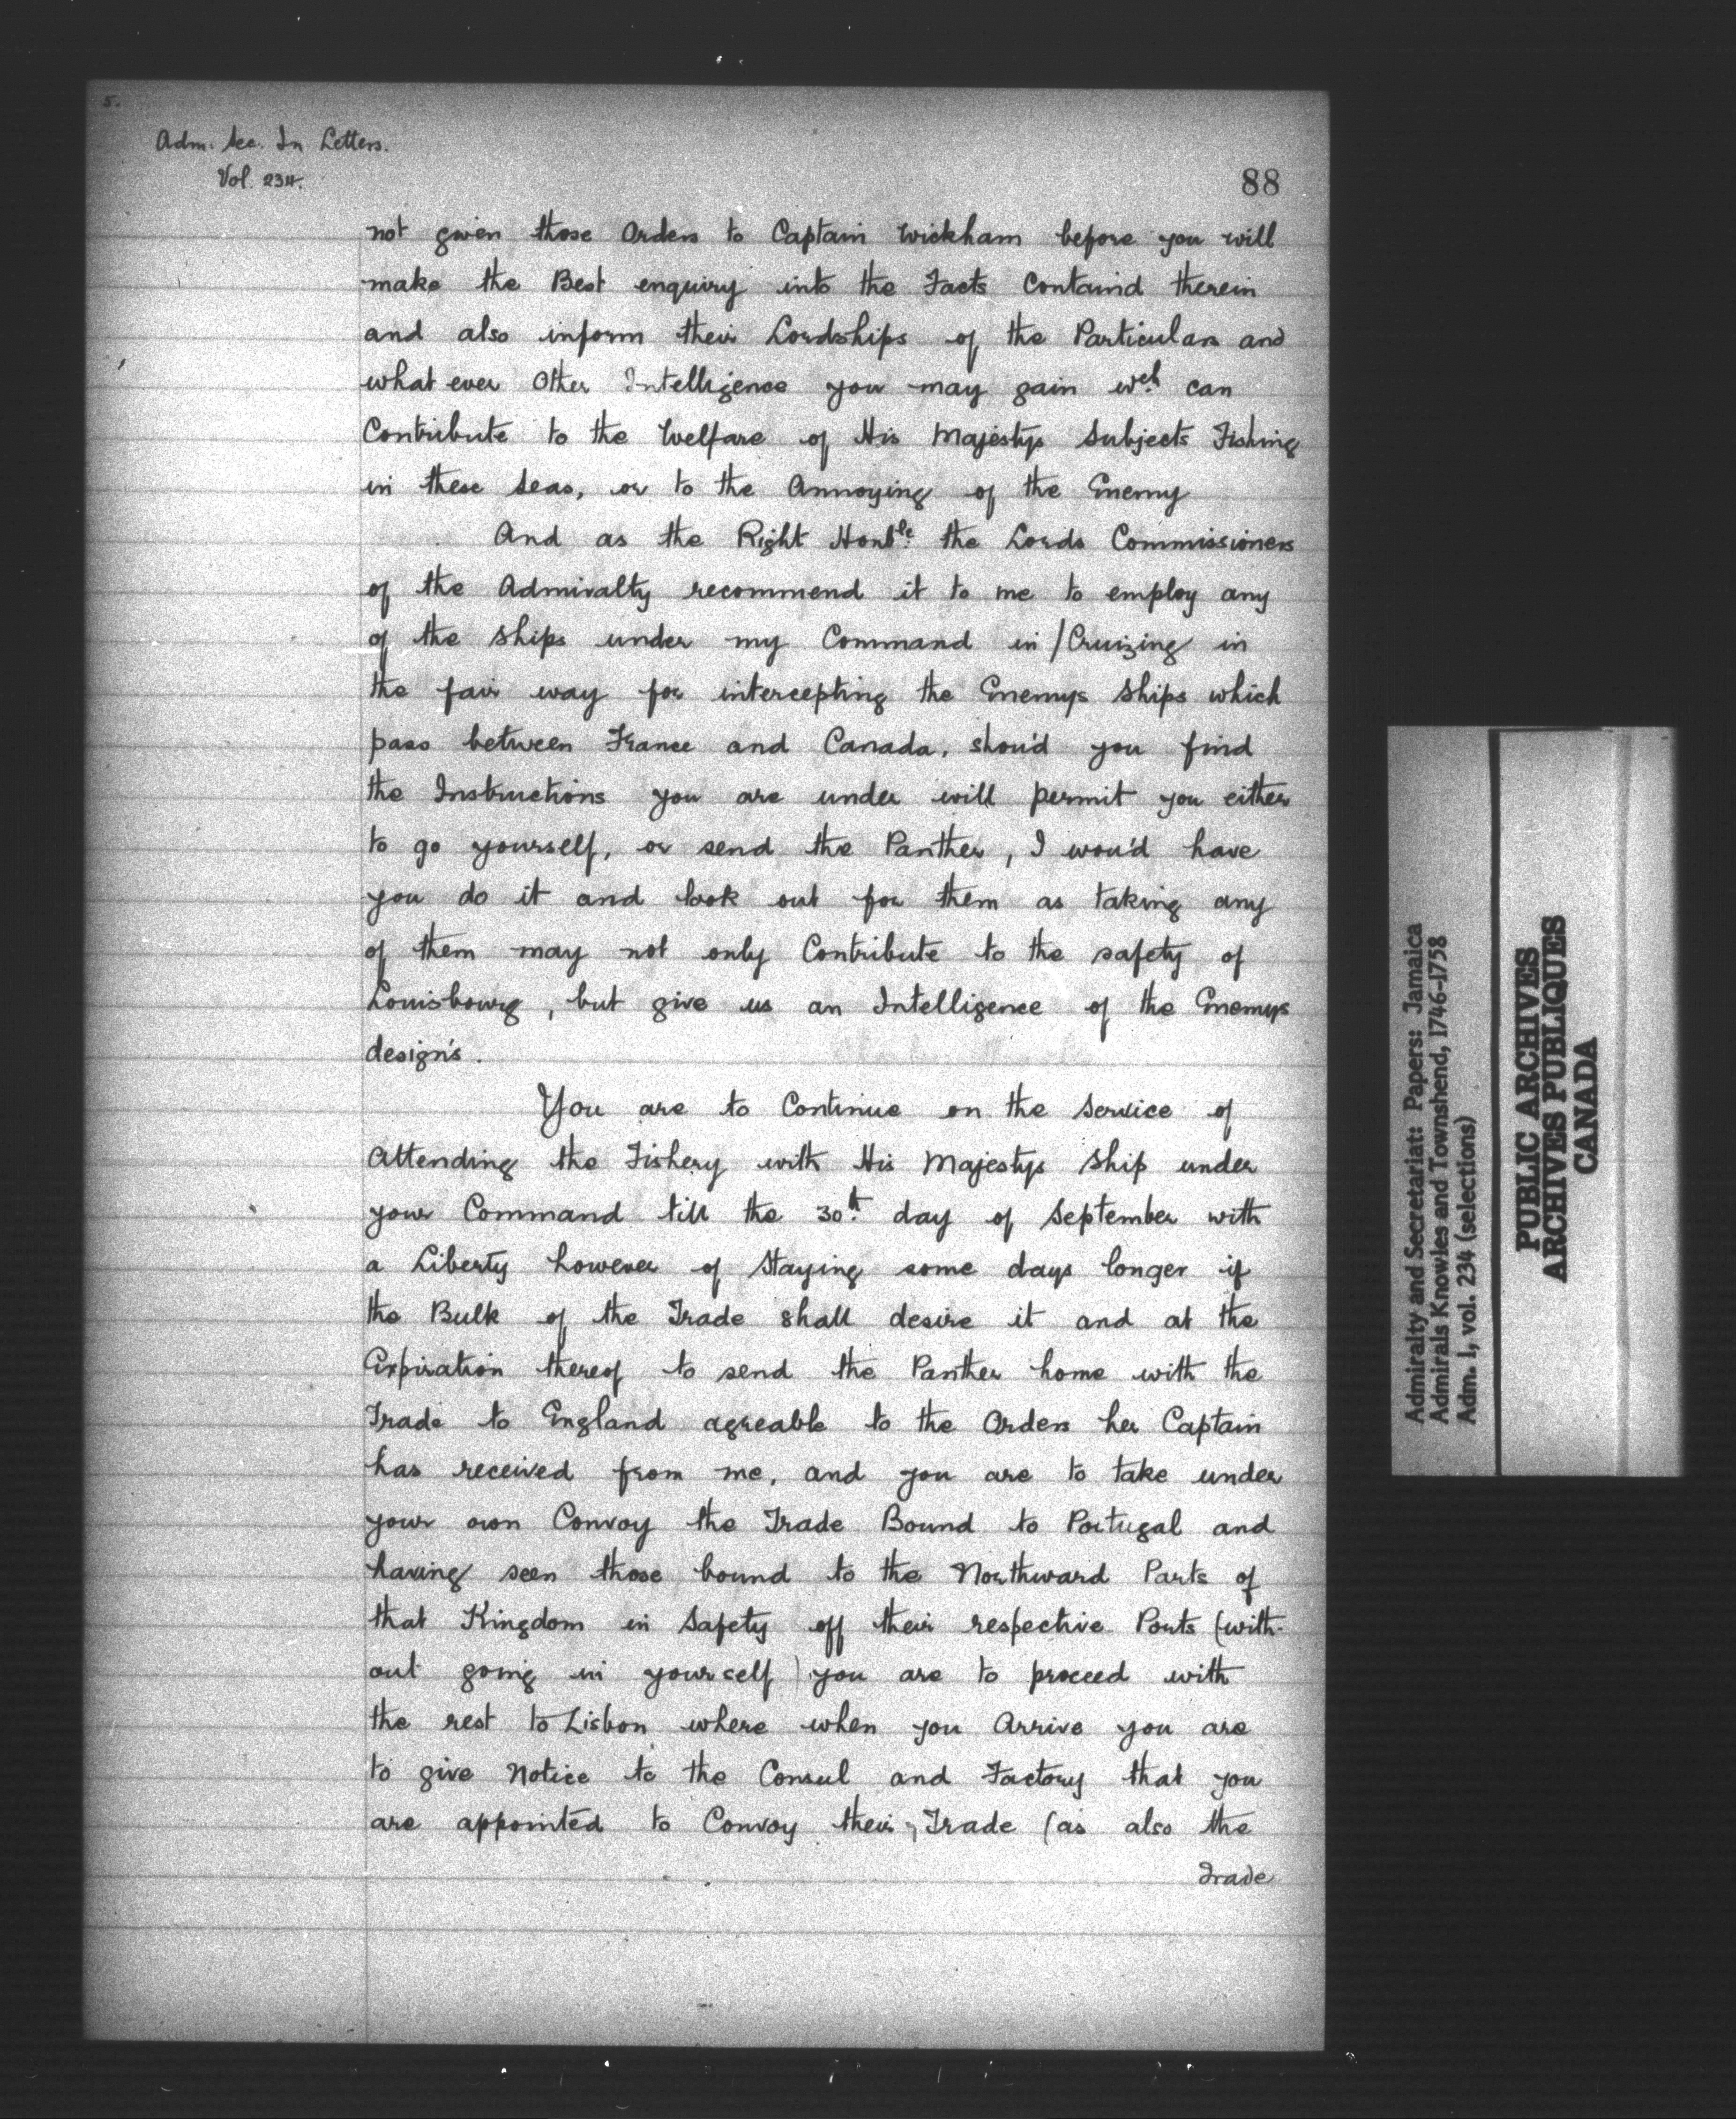 5.
Adm. Sec. In Letters.
Vol. 234.
88
not given those Orders to Captain Wickham before you will
make the Best enquiry into the Facts Containd therein
and also inform their Lordships of the Particulars and
what ever Other Intelligence you may gain wch can
Contribute to the Welfare of His Majestys Subjects Fishing
in these Seas, or to the Annoying of the Enemy
And as the Right Honble the Lords Commissioners
of the Admiralty recommend it to me to employ any
of the Ships under my Command in / Cruizing in
the fair way for intercepting the Enemys Ships which
pass between France and Canada, shou'd you find
the Instructions you are under will permit you either
to go yourself, or send the Panther, I wou'd have
you do it and look out for them as taking any
of them may not only Contribute to the safety of
Louisbourg, but give us an Intelligence of the Enemys
design's.
You are to Continue on the Service of
Attending the Fishery with His Majestys Ship under
your Command till the 30th day of September with
a Liberty however of Staying some days longer if
the Bulk of the Trade shall desire it and at the
Expiration thereof to send the Panther home with the
Trade to England agreable to the Orders her Captain
has received from me, and you are to take under
your own Convoy the Trade Bound to Portugal and
having seen those bound to the Northward Parts of
that Kingdom in Safety off their respective Ports (with-
out going in yourself) you are to proceed with
the rest to Lisbon where when you Arrive you are
to give Notice to the Consul and Factory that you
are appointed to Convoy their Trade (as also the
Trade
Admiralty and Secretariat: Papers: Jamaica
Admirals Knowles and Townshend, 1746-1758
Adm. 1, vol. 234 (selections)
PUBLIC ARCHIVES
ARCHIVES PUBLIQUES
CANADA